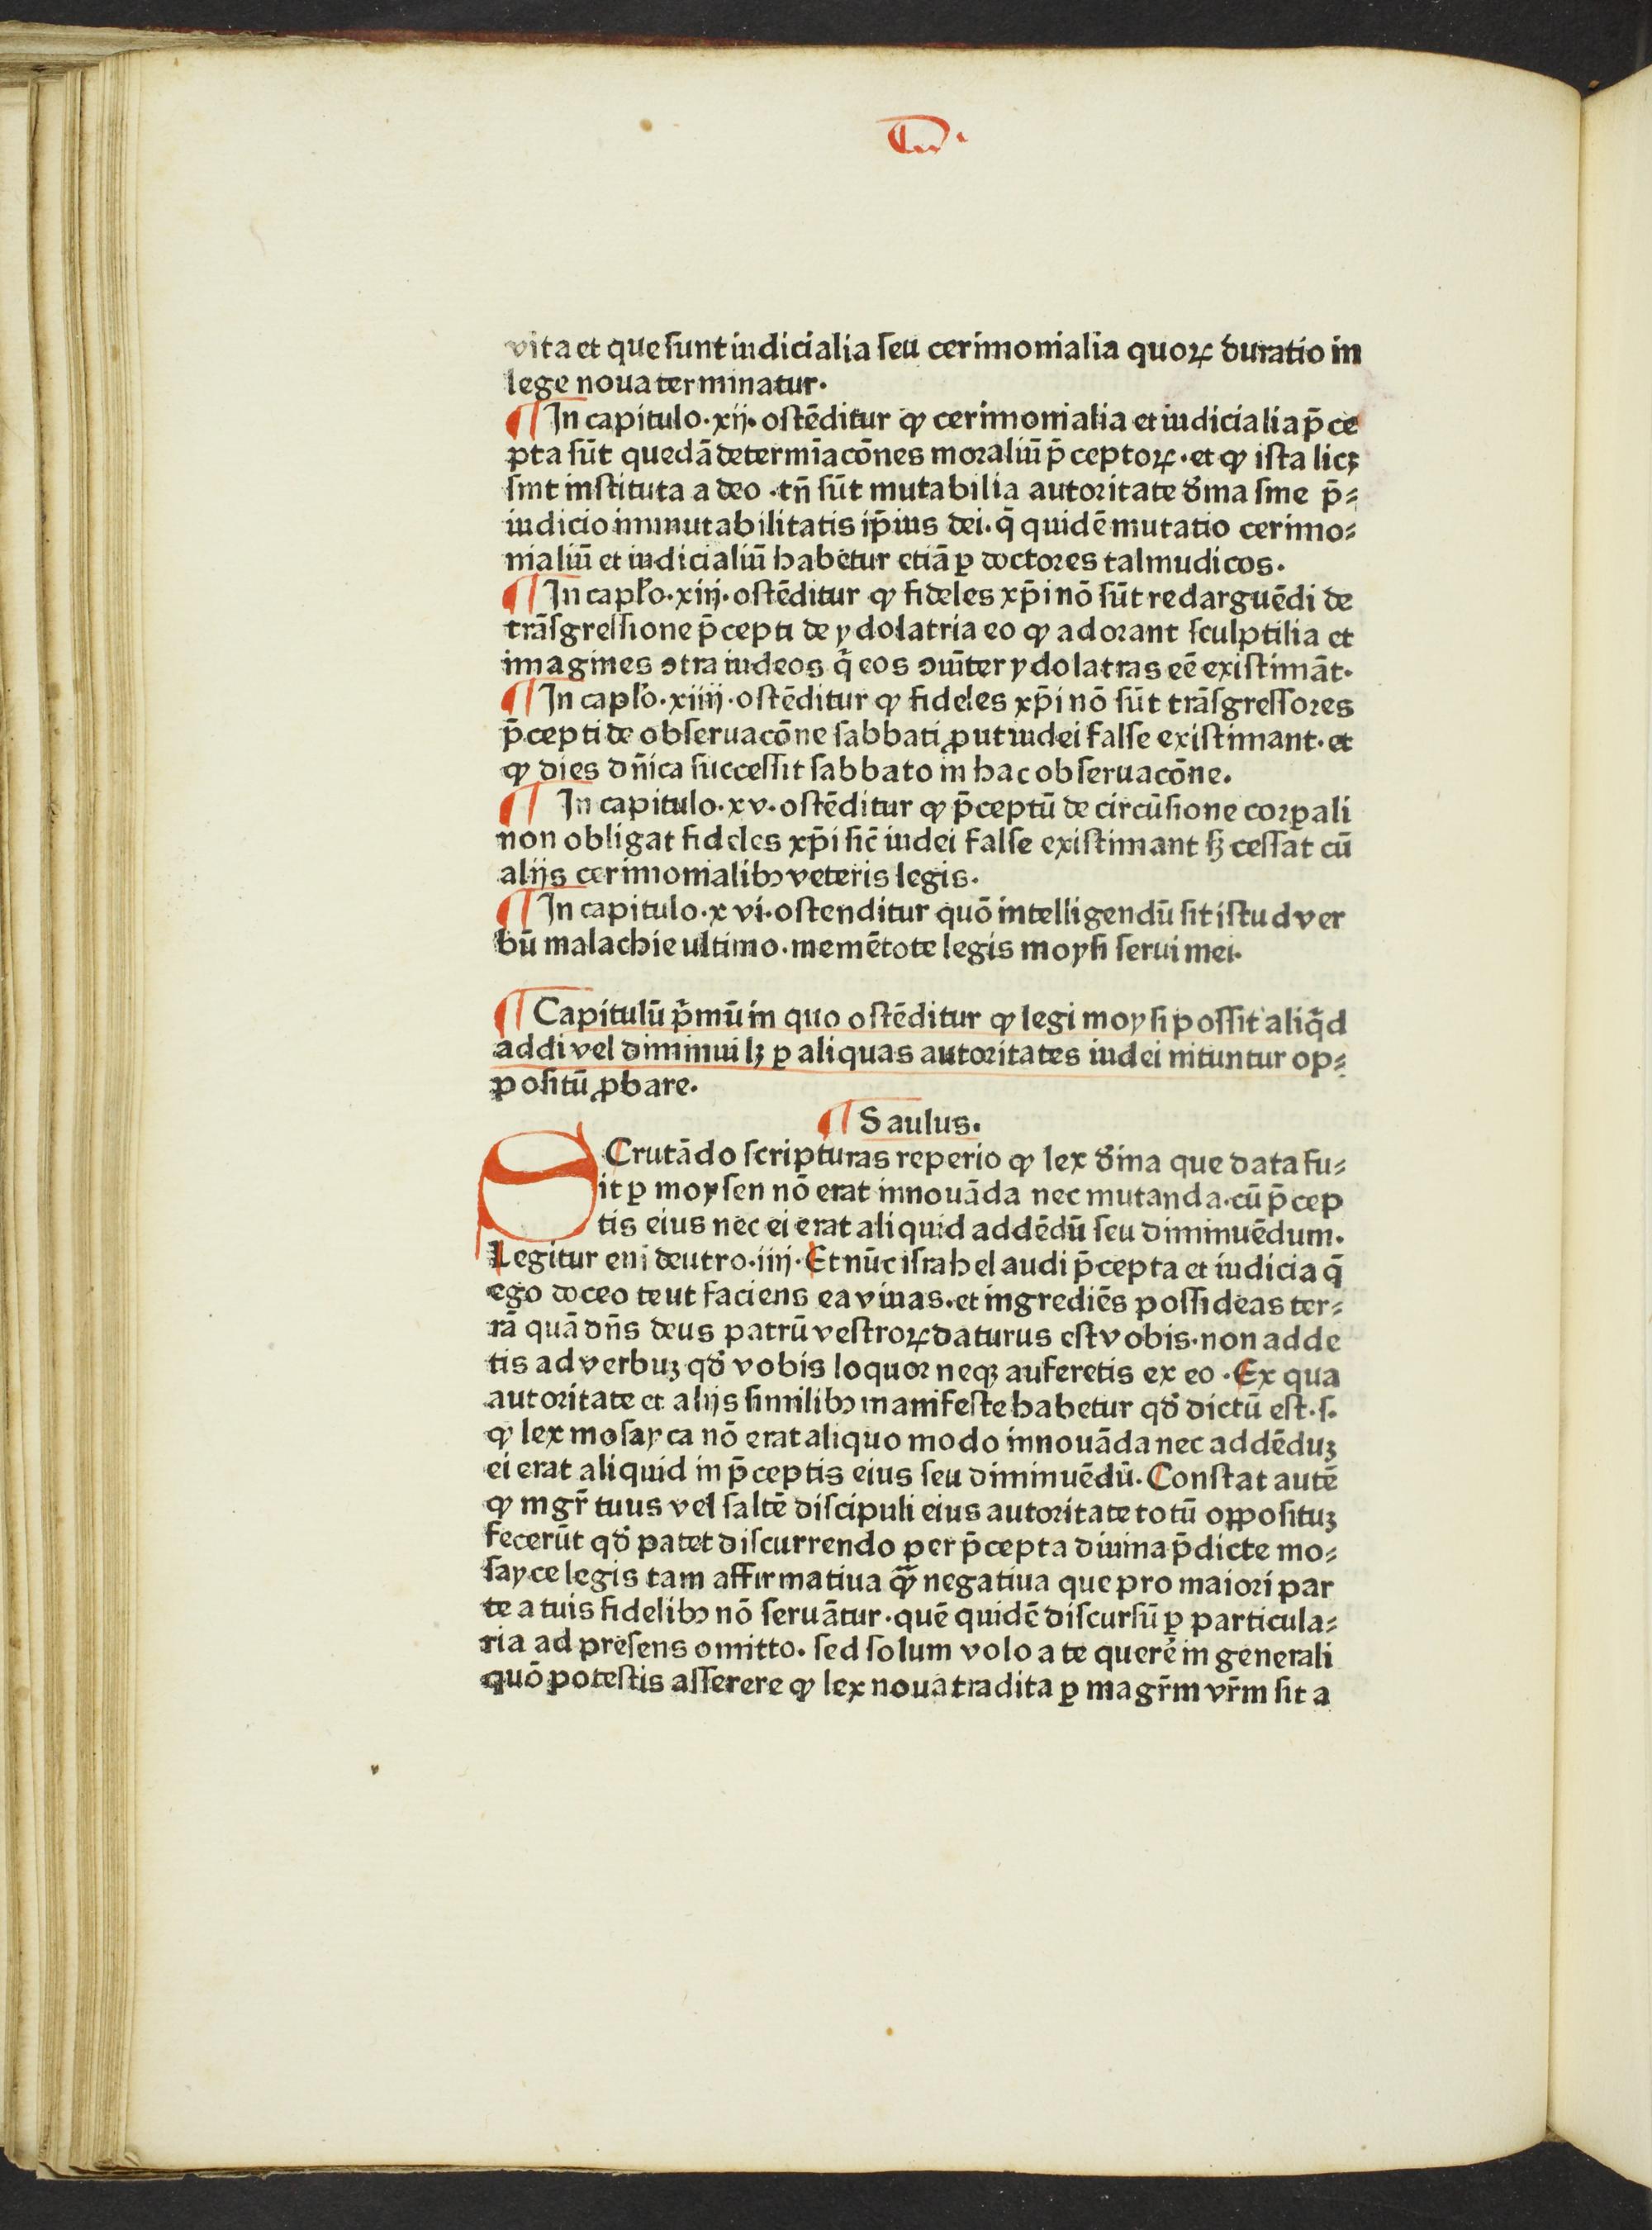 vita et que sunt iudicialia seu cerimonialia quoꝝ duratio in
lege noua terminatur.
¶ In capitulo .xij. ostēditur ꝙ cerimonialia et iudicialia p̄ce
pta sūt quedā determīacōnes moraliū p̄ceptoꝝ. et ꝙ ista licꝫ
sint instituta a deo. tn̄ sūt mutabilia autoritate diͥna sine p̄⸗
iudicio inmutabilitatis ip̄ius dei. q̄ quidē mutatio cerimo⸗
nialiū et iudicialiū habetur etiā ꝑ doctores talmudicos.
¶ In capl̓o .xiij. ostēditur ꝙ fideles xp̄i nō sūt redarguēdi de
trāsgressione p̄cepti de ydolatria eo ꝙ adorant sculptilia et
imagines ꝯtra iudeos qͥ eos ꝯūiter ydolatras eē existimāt.
¶ In capl̓o .xiiij. ostēditur ꝙ fideles xp̄i nō sūt trāsgressores
p̄cepti de obseruacōne sabbati ꝓut iudei false existimant. et
ꝙ dies dn̄ica successit sabbato in hac obseruacōne.
¶ In capitulo .xv. ostēditur ꝙ p̄ceptū de circūsione corꝑali
non obligat fideles xp̄i sic̄ iudei false existimant sꝫ cessat cū
alijs cerimonialibꝫ veteris legis.
¶ In capitulo .xvi. ostenditur quō intelligendū sit istud ver
bū malachie ultimo. memētote legis moysi serui mei.
¶ Capitulū pͥmū in quo ostēditur ꝙ legi moysi possit aliqͥd
addi vel diminui lꝫ ꝑ aliquas autoritates iudei nituntur op⸗
positū ꝓbare.
¶ Saulus.
SCrutādo scripturas reperio ꝙ lex diͥna que data fu⸗
it ꝑ moysen nō erat innouāda nec mutanda. cū p̄cep
tis eius nec ei erat aliquid addēdū seu diminuēdum.
Legitur eni deutro .iiij. Et nūc israhel audi p̄cepta et iudicia q̄
ego doceo te ut faciens ea viuas. et ingrediēs possideas ter⸗
rā quā dn̄s deus patrū vestroꝝ daturus est vobis. non adde
tis ad verbuꝫ qd̓ vobis loquor neqꝫ auferetis ex eo. Ex qua
autoritate et alijs similibꝫ manifeste habetur qd̓ dictū est. s.
ꝙ lex mosayca nō erat aliquo modo innouāda nec addēduꝫ
ei erat aliquid in p̄ceptis eius seu diminuēdū. Constat autē
ꝙ mgr̄ tuus vel saltē discipuli eius autoritate totū oppositūꝫ
fecerūt qd̓ patet discurrendo per p̄cepta diuina p̄dicte mo⸗
sayce legis tam affirmatiua qͣꝫ negatiua que pro maiori par
te a tuis fidelibꝫ nō seruātur. quē quidē discursū ꝑ particula⸗
ria ad presens omitto. sed solum volo a te querē in generali
quō potestis asserere ꝙ lex noua tradita ꝑ magr̄m vr̄m sit a